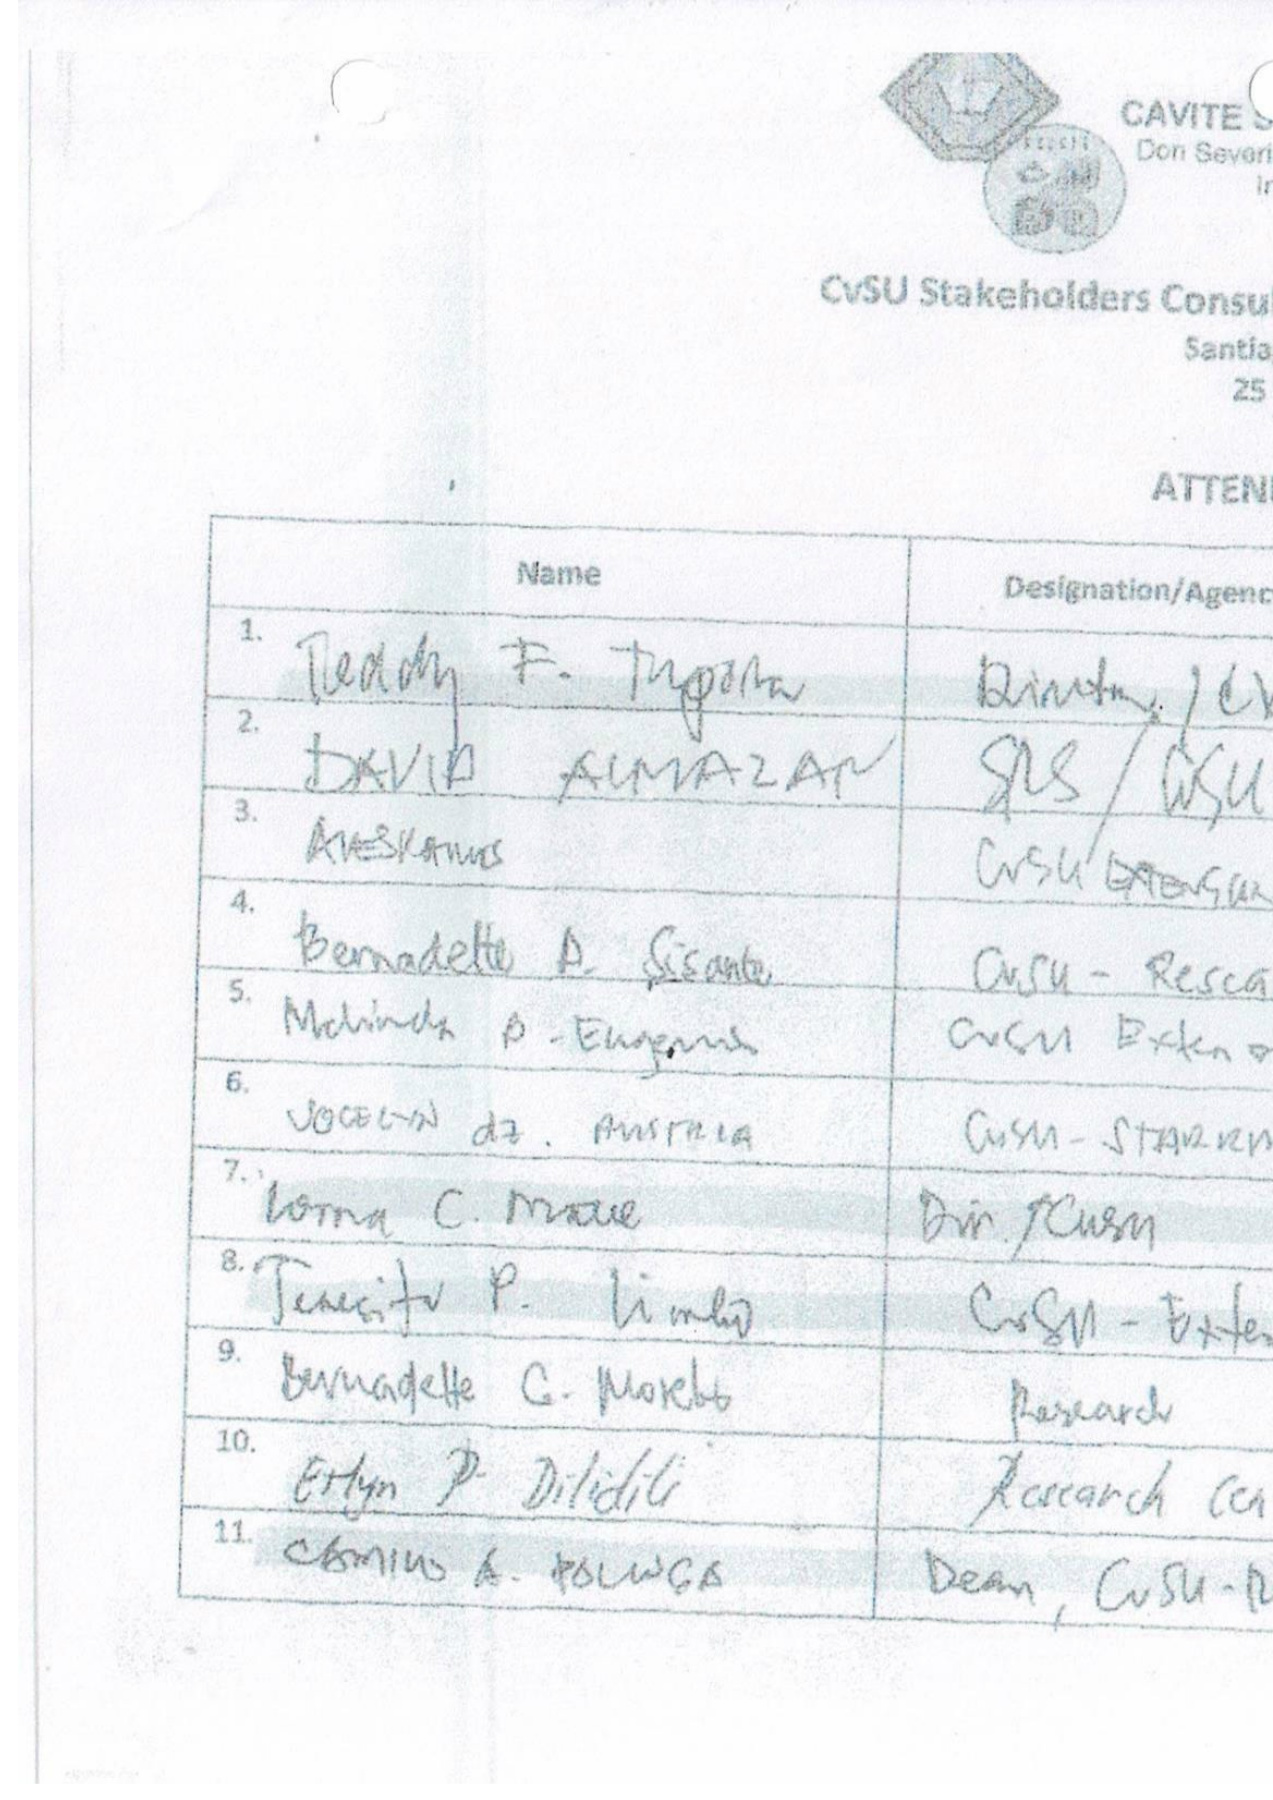 CAVITE S
Don Severi
In
CvSU Stakeholders Consul
Santia
25
ATTEN
Name Designation/Agenc
1. Teddy F. Topota
2. DAVID ALMAZAN SRS / CvSU
3. CvSU
4. Bernadette A. Sisante CvSU - Resea
5. Melinda CvSU Exten
6. JOCELYN dz. AUSTRIA CvSU - STARRD
7. Lorna C. Matel Dir. / CvSU
8. Teresita P. Limbo CvSU - Exten
9. Bernadette C. Research
10. Erlyn P. Dilidili Research Cen
11. CAMILO A. POLINGA Dean, CvSU - R